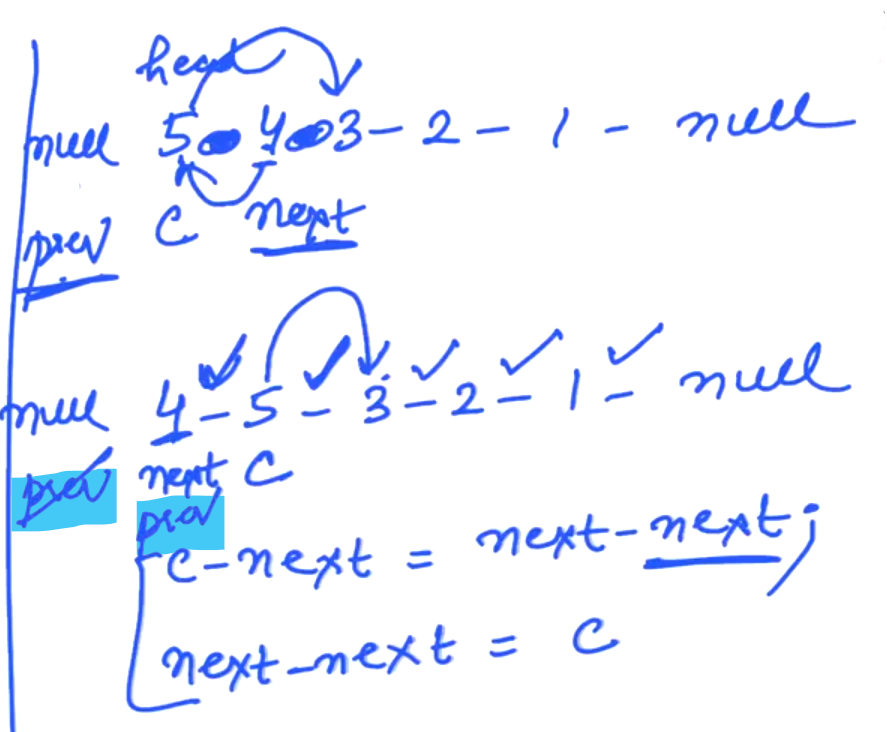 head
null 5 4 3 - 2 - 1 - null
prev C next
null 4 - 5 - 3 - 2 - 1 - null
prev next C
prev
c-next = next-next;
next-next = c